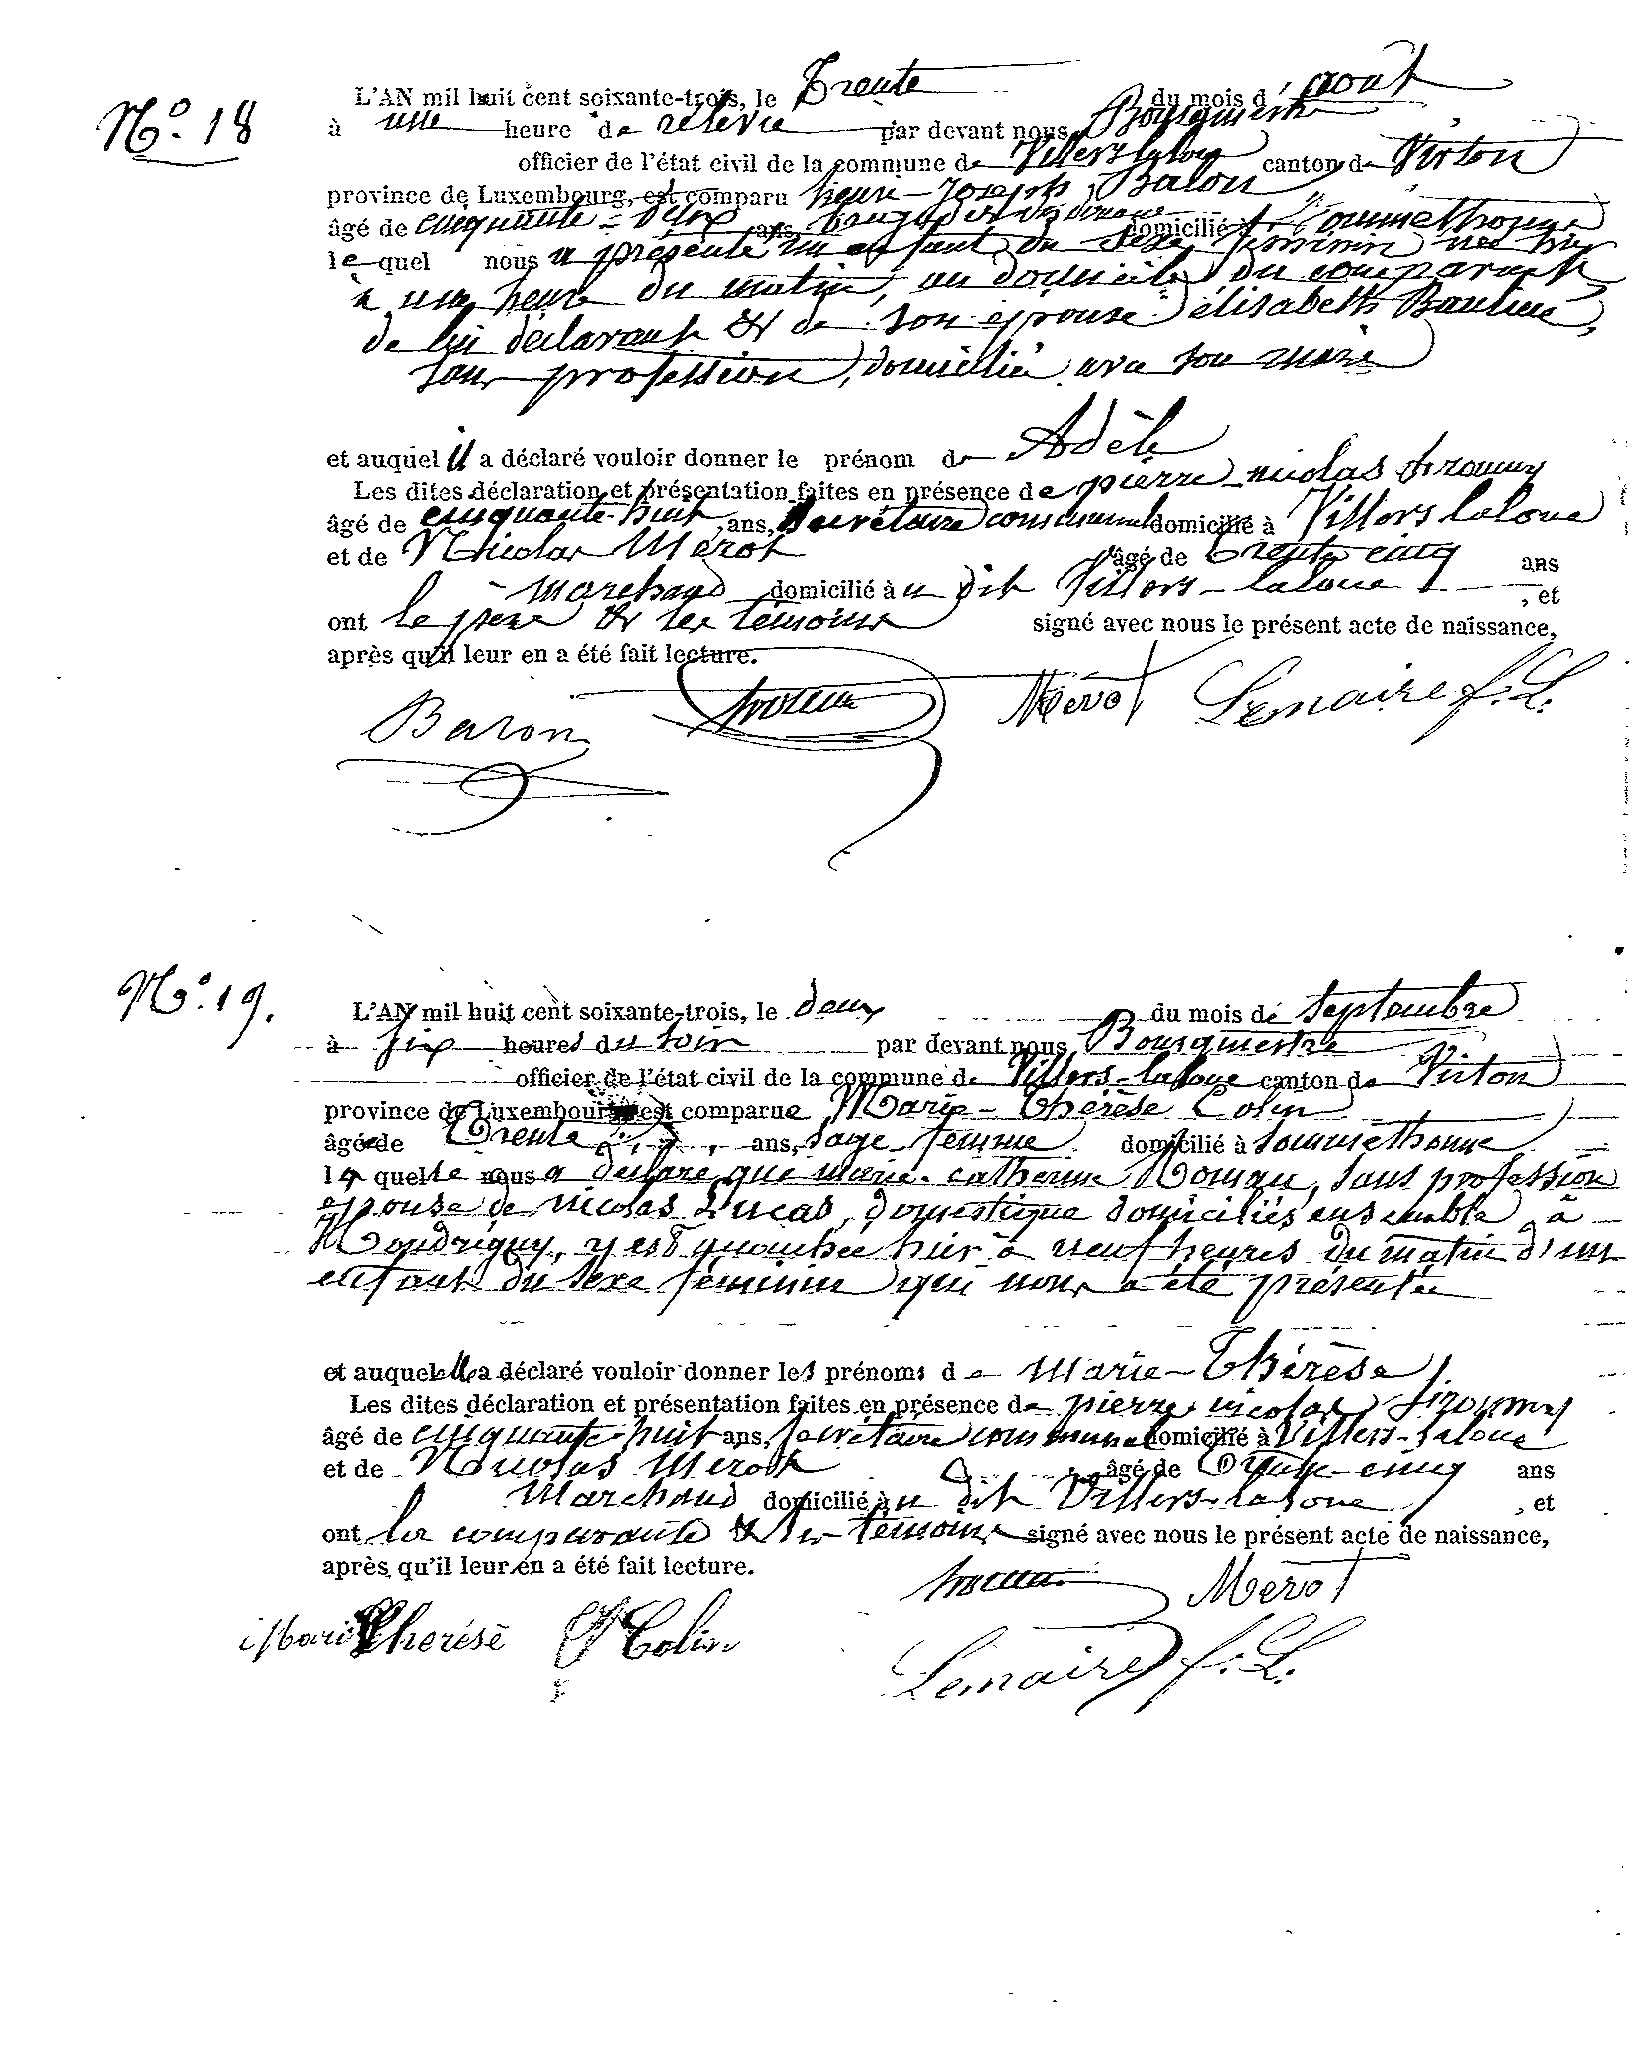 N.º 18
L'AN mil huit cent soixante-trois, le Trente du mois d' aout
à une heure de relevée par devant nous Bourgmestre
officier de l'état civil de la commune de Villers laloue canton de Virton
province de Luxembourg, est comparu henri-Joseph
âgé de cinquante-deux ans, domicilié à Sommethonne
le quel nous a présenté un enfant du sexe féminin née hier
à une heure du matin, au domicile du comparant
de lui déclarant & de son épouse élisabeth
sans profession, domicilié avec son mari
et auquel il a déclaré vouloir donner le prénom de Adèle
Les dites déclaration et présentation faites en présence de pierre-nicolas
âgé de cinquante-huit ans, secrétaire communal domicilié à Villers laloue
et de Nicolas Merot âgé de Trente cinq ans
Marchand domicilié au dit Villers-laloue , et
ont le père & les témoins signé avec nous le présent acte de naissance,
après qu'il leur en a été fait lecture.
Baron Merot Lemaire f. L.
N.º 19.
L'AN mil huit cent soixante-trois, le deux du mois de septembre
à six heures du soir par devant nous Bourgmestre
officier de l'état civil de la commune de Villers-laloue canton de Virton
province de Luxembourg est comparue Marie-Thérèse Colin
âgée de Trente ans, sage femme domicilié à Sommethonne
la quelle nous a déclaré que marie-catherine sans profession
épouse de nicolas Lucas, domestique domiciliés ensemble à
Houdrigny, y est accouchée hier à neuf heures du matin d'un
enfant du sexe féminin qui nous a été présentée
et auquel elle a déclaré vouloir donner les prénoms de Marie-Thérèse
Les dites déclaration et présentation faites en présence de pierre nicolas
âgé de cinquante-huit ans, secrétaire communal domicilié à Villers-laloue
et de Nicolas Merot âgé de Trente-cinq ans
Marchand domicilié au dit Villers-laloue , et
ont la comparante & les témoins signé avec nous le présent acte de naissance,
après qu'il leur en a été fait lecture.
Merot
Marie Therése Colin
Lemaire f. L.